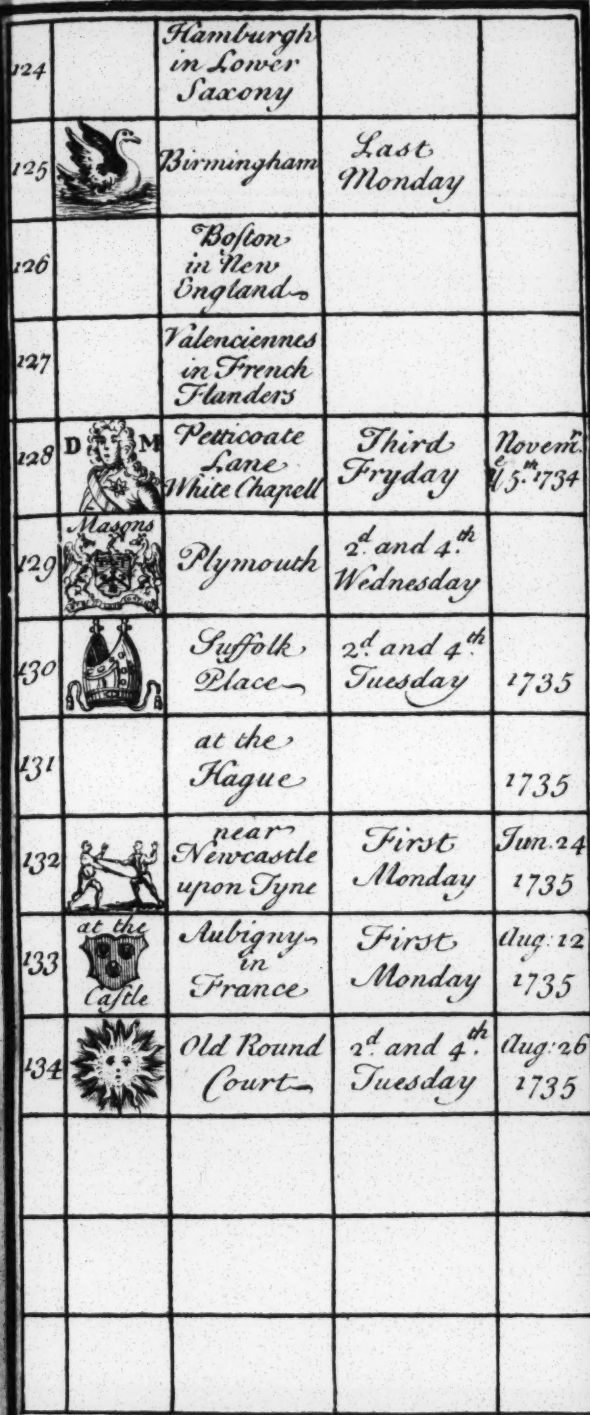 124
Hamburgh
in Lower
Saxony
125
Birmingham
Last
Monday
126
Boſton
in New
England
127
Valenciennes
in French
Flanders
128
D M
Petticoate
Lane
White Chapell
Third
Fryday
Novemʳ.
yᵉ 5.ᵗʰ 1734
129
Masons
Plymouth
2.ᵈ and 4.ᵗʰ
Wednesday
130
Suffolk
Place
2.ᵈ and 4.ᵗʰ
Tuesday
1735
131
at the
Hague
1735
132
near
Newcastle
upon Tyne
First
Monday
Jun. 24
1735
133
at the
Caſtle
Aubigny
in
France
First
Monday
Aug: 12
1735
134
Old Round
Court
2.ᵈ and 4.ᵗʰ
Tuesday
Aug: 26
1735